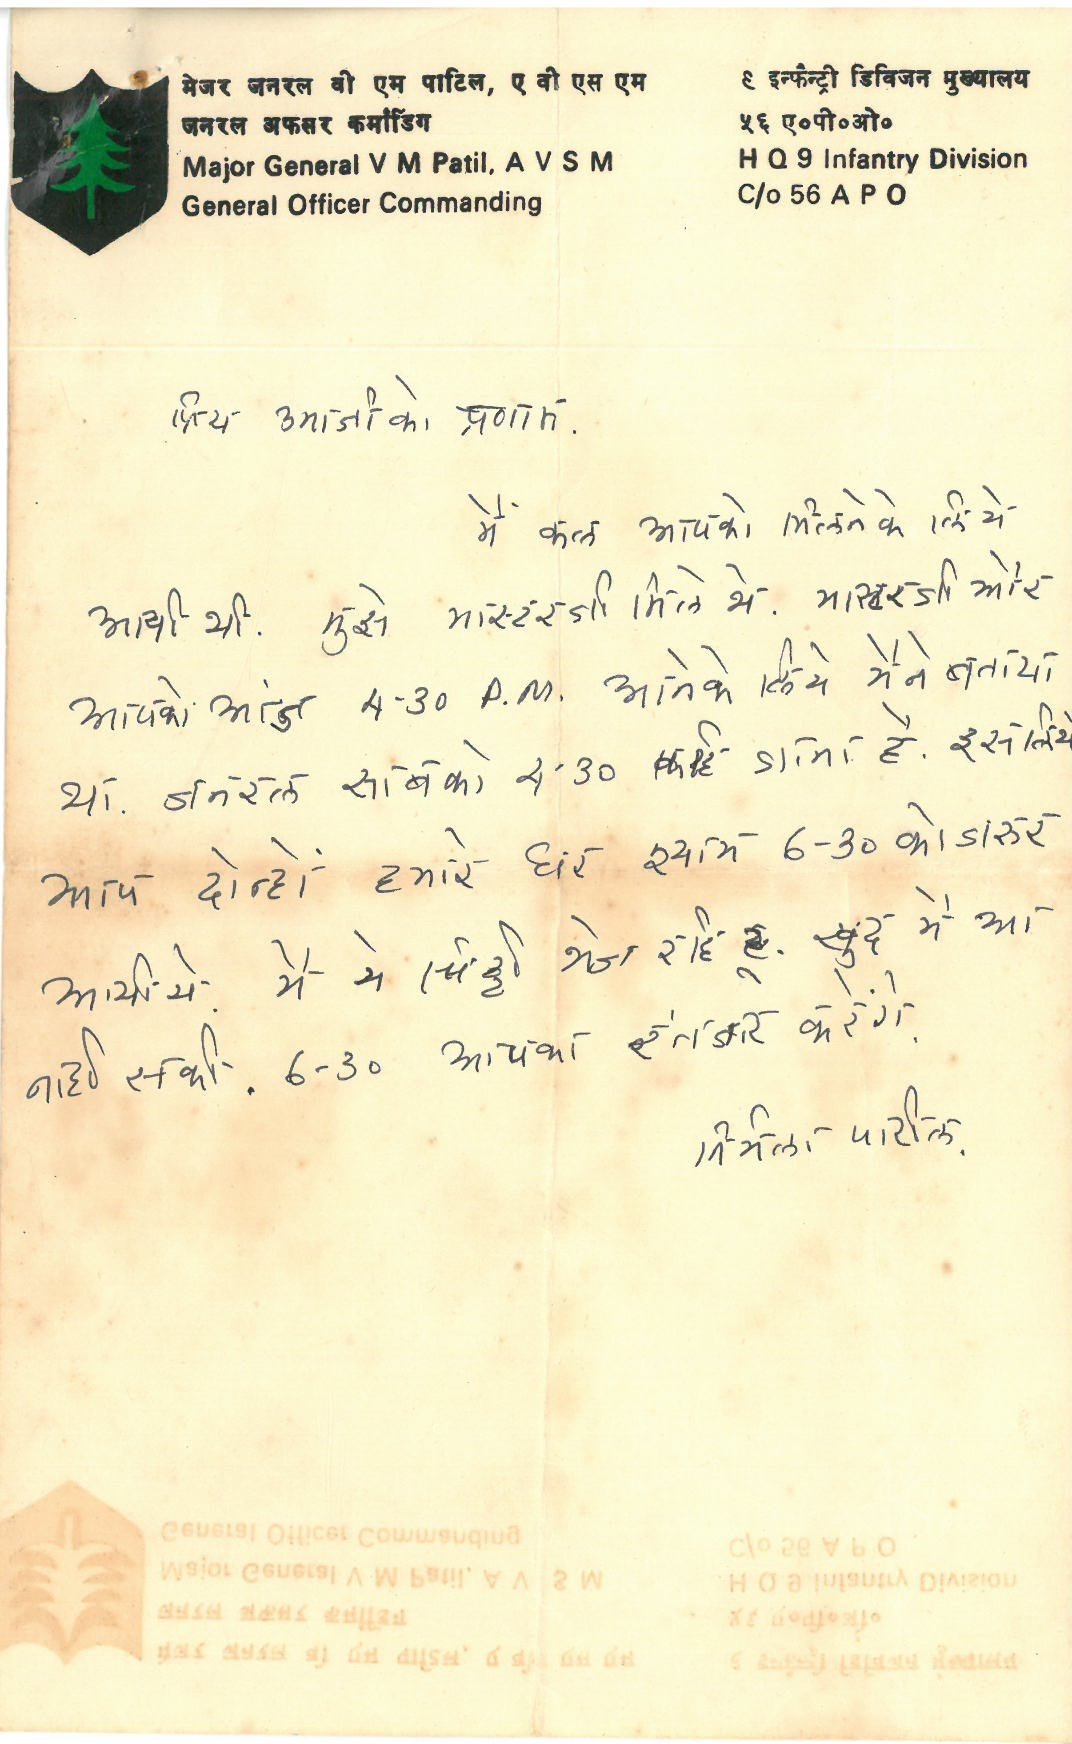 मेजर जनरल वी एम पाटिल, ए वी एस एम
जनरल अफसर कमांडिंग
Major General V M Patil, A V S M
General Officer Commanding
९ इन्फैन्ट्री डिविजन मुख्यालय
५६ ए०पी०ओ०
H Q 9 Infantry Division
C/o 56 A P O
प्रिय उमाजीको प्रणाम.
मैं कल आपको मिलनेके लिये
आयी थी. मुझे मास्टरजी मिले थे. मास्टरजी और
आपको आज 4-30 P.M. आनेके लिये मैंने बताया
था. जनरल साबको 4-30 कहि जाना है. इसलिये
आप दोन्हों हमारे घर श्याम 6-30 को जरुर
आयीये. मैं ये चिठ्ठी भेज रहि हूं. खुद मैं आ
नाही सकी. 6-30 आपका इंतजार करेंगे.
निर्मला पाटील.
General Officer Commanding
Major General V M Patil, A V S M
जनरल अफसर कमांडिंग
मेजर जनरल वी एम पाटिल, ए वी एस एम
C/o 56 A P O
H Q 9 Infantry Division
५६ ए०पी०ओ०
९ इन्फैन्ट्री डिविजन मुख्यालय